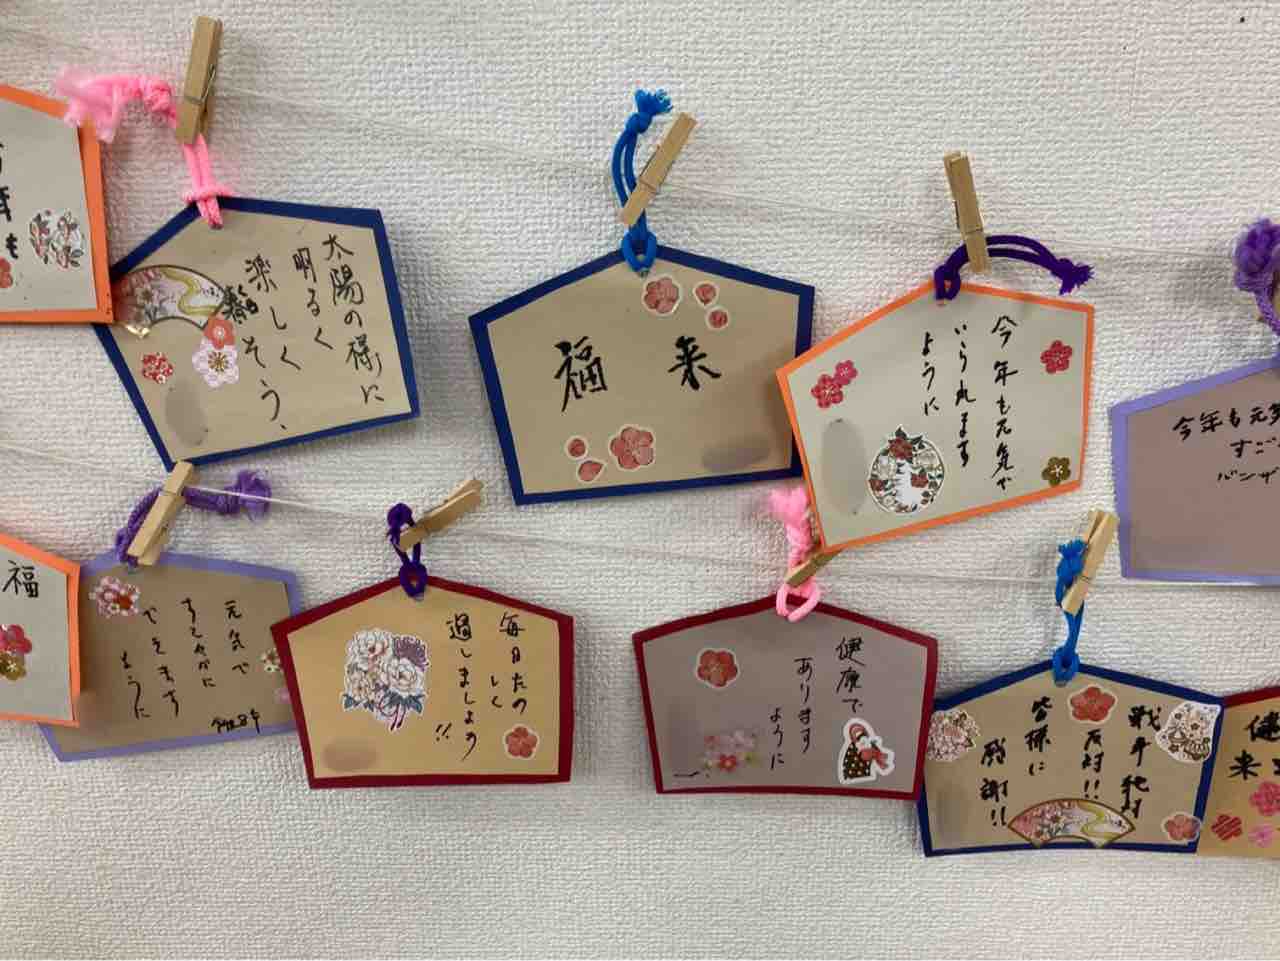 年も
太陽の様に
明るく
楽しく
そう、
来
福
今年も元気で
いられます
ように
今年も元気
すご
バンザ
福
元気で
すこやかに
できます
ように
毎日たの
しく
過しましょう
!!
健康で
あります
ように
戦争絶対
反対!!
皆様に
感謝!!
健
来